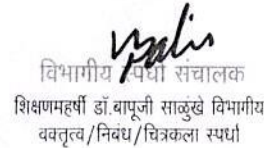 विभागीय स्पर्धा संचालक
शिक्षणमहर्षी डॉ.बापूजी साळुंखे विभागीय
वक्तृत्व/निबंध/चित्रकला स्पर्धा